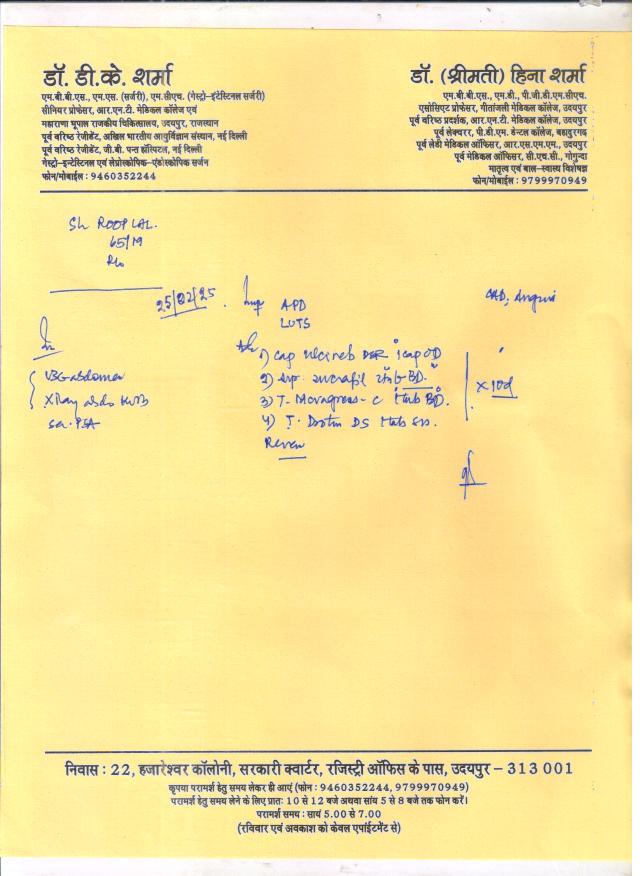 डॉ. डी.के. शर्मा
एम.बी.बी.एस., एम.एस. (सर्जरी), एम.सीएच. (गेस्ट्रो-इंटेस्टिनल सर्जरी)
सीनियर प्रोफेसर, आर.एन.टी. मेडिकल कॉलेज एवं
महाराणा भूपाल राजकीय चिकित्सालय, उदयपुर, राजस्थान
पूर्व वरिष्ठ रेजीडेंट, अखिल भारतीय आयुर्विज्ञान संस्थान, नई दिल्ली
पूर्व वरिष्ठ रेजीडेंट, जी.बी. पन्त हॉस्पिटल, नई दिल्ली
गेस्ट्रो-इन्टेस्टिनल एवं लेप्रोस्कोपिक-एंडोस्कोपिक सर्जन
फोन/मोबाईल : 9460352244
डॉ. (श्रीमती) हिना शर्मा
एम.बी.बी.एस., एम.डी., पी.जी.डी.एम.सीएच.
एसोसिएट प्रोफेसर, गीतांजली मेडिकल कॉलेज, उदयपुर
पूर्व वरिष्ठ प्रदर्शक, आर.एन.टी. मेडिकल कॉलेज, उदयपुर
पूर्व लेक्चरर, पी.डी.एम. डेन्टल कॉलेज, बहादुरगढ़
पूर्व लेडी मेडिकल ऑफिसर, आर.एस.एम.एम., उदयपुर
पूर्व मेडिकल ऑफिसर, सी.एच.सी., गोगुन्दा
मातृत्व एवं बाल-स्वास्थ्य विशेषज्ञ
फोन/मोबाईल : 9799970949
Sh ROOP LAL.
65/M
25/02/25
APD
LUTS
CAD, Angina
USG abdomen
X Ray abdo KUB
Ser. PSA
1) cap DSR 1 cap OD
2) Syp. sucrafil BD.
3) T. -C 1 tab BD.
4) T. DS 1 tab
x 10d
Review
निवास : 22, हजारेश्वर कॉलोनी, सरकारी क्वार्टर, रजिस्ट्री ऑफिस के पास, उदयपुर – 313 001
कृपया परामर्श हेतु समय लेकर ही आएं (फोन : 9460352244, 9799970949)
परामर्श हेतु समय लेने के लिए प्रातः 10 से 12 बजे अथवा सांय 5 से 8 बजे तक फोन करें।
परामर्श समय : सायं 5.00 से 7.00
(रविवार एवं अवकाश को केवल एपांईटमेंट से)